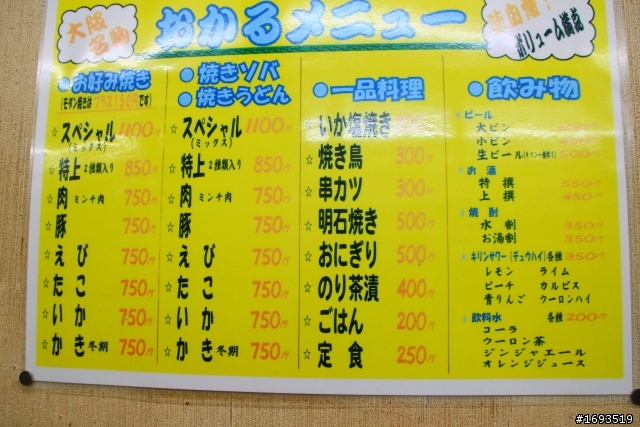 大阪名物
おかるメニュー
ボリューム満点
●お好み焼き
(モダン焼きはプラス150円です)
☆スペシャル 1100円
(ミックス)
☆特上 2種類入り 850円
☆肉 ミンチ肉 750円
☆豚 750円
☆えび 750円
☆たこ 750円
☆いか 750円
☆かき 冬期 750円
●焼きソバ
●焼きうどん
☆スペシャル 1100円
(ミックス)
☆特上 2種類入り 850円
☆肉 ミンチ肉 750円
☆豚 750円
☆えび 750円
☆たこ 750円
☆いか 750円
☆かき 冬期 750円
●一品料理
☆いか塩焼き
☆焼き鳥 300円
☆串カツ 300円
☆明石焼き 500円
☆おにぎり 500円
☆のり茶漬 400円
☆ごはん 200円
☆定食 250円
●飲み物
ビール
大ビン
小ビン
生ビール 500円
お酒
特撰 550円
上撰 450円
焼酎
水割 350円
お湯割 350円
キリンサワー(チュウハイ)各種 350円
レモン ライム
ピーチ カルピス
青りんご ウーロンハイ
飲料水 各種 200円
コーラ
ウーロン茶
ジンジャエール
オレンジジュース
#1693519